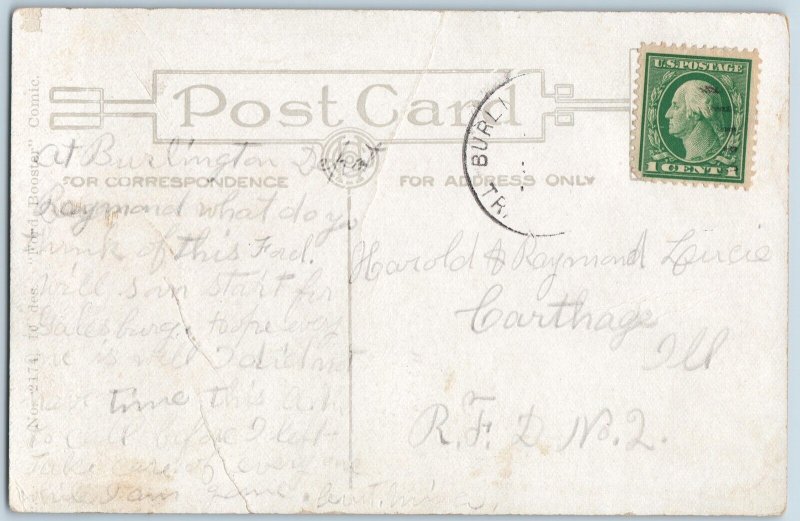 Post Card
FOR CORRESPONDENCE
FOR ADDRESS ONLY
U.S. POSTAGE
1 CENT 1
BURLI
TR.
No. 2174. 10 des. "Ford Booster" Comic.
at Burlington
Raymond what do yo
think of this Ford.
Will soon start for
Galesburg. hope every
one is well I did not
have time this
to call before I left
Take care of everyone
while I am gone.
Harold & Raymond
Carthage
Ill
R. F. D. No. 2.